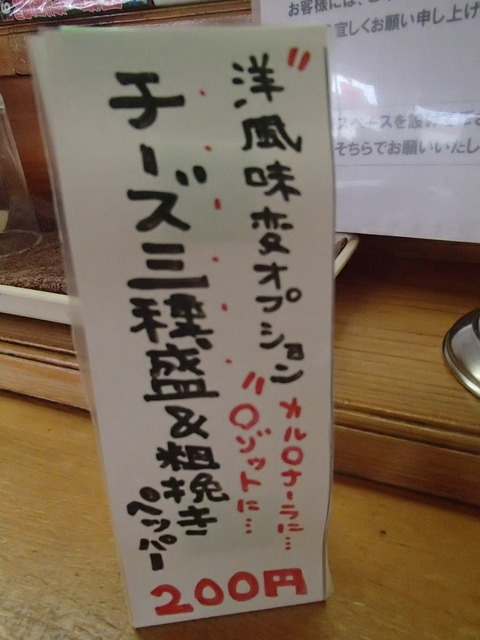 〃洋風味変オプション〃
カル〇ナーラに…
〇ゾットに…
チーズ三種盛&粗挽き
ペッパー
200円
お客様には、
宜しくお願い申し上げ
スペースを設
そちらでお願いいたし